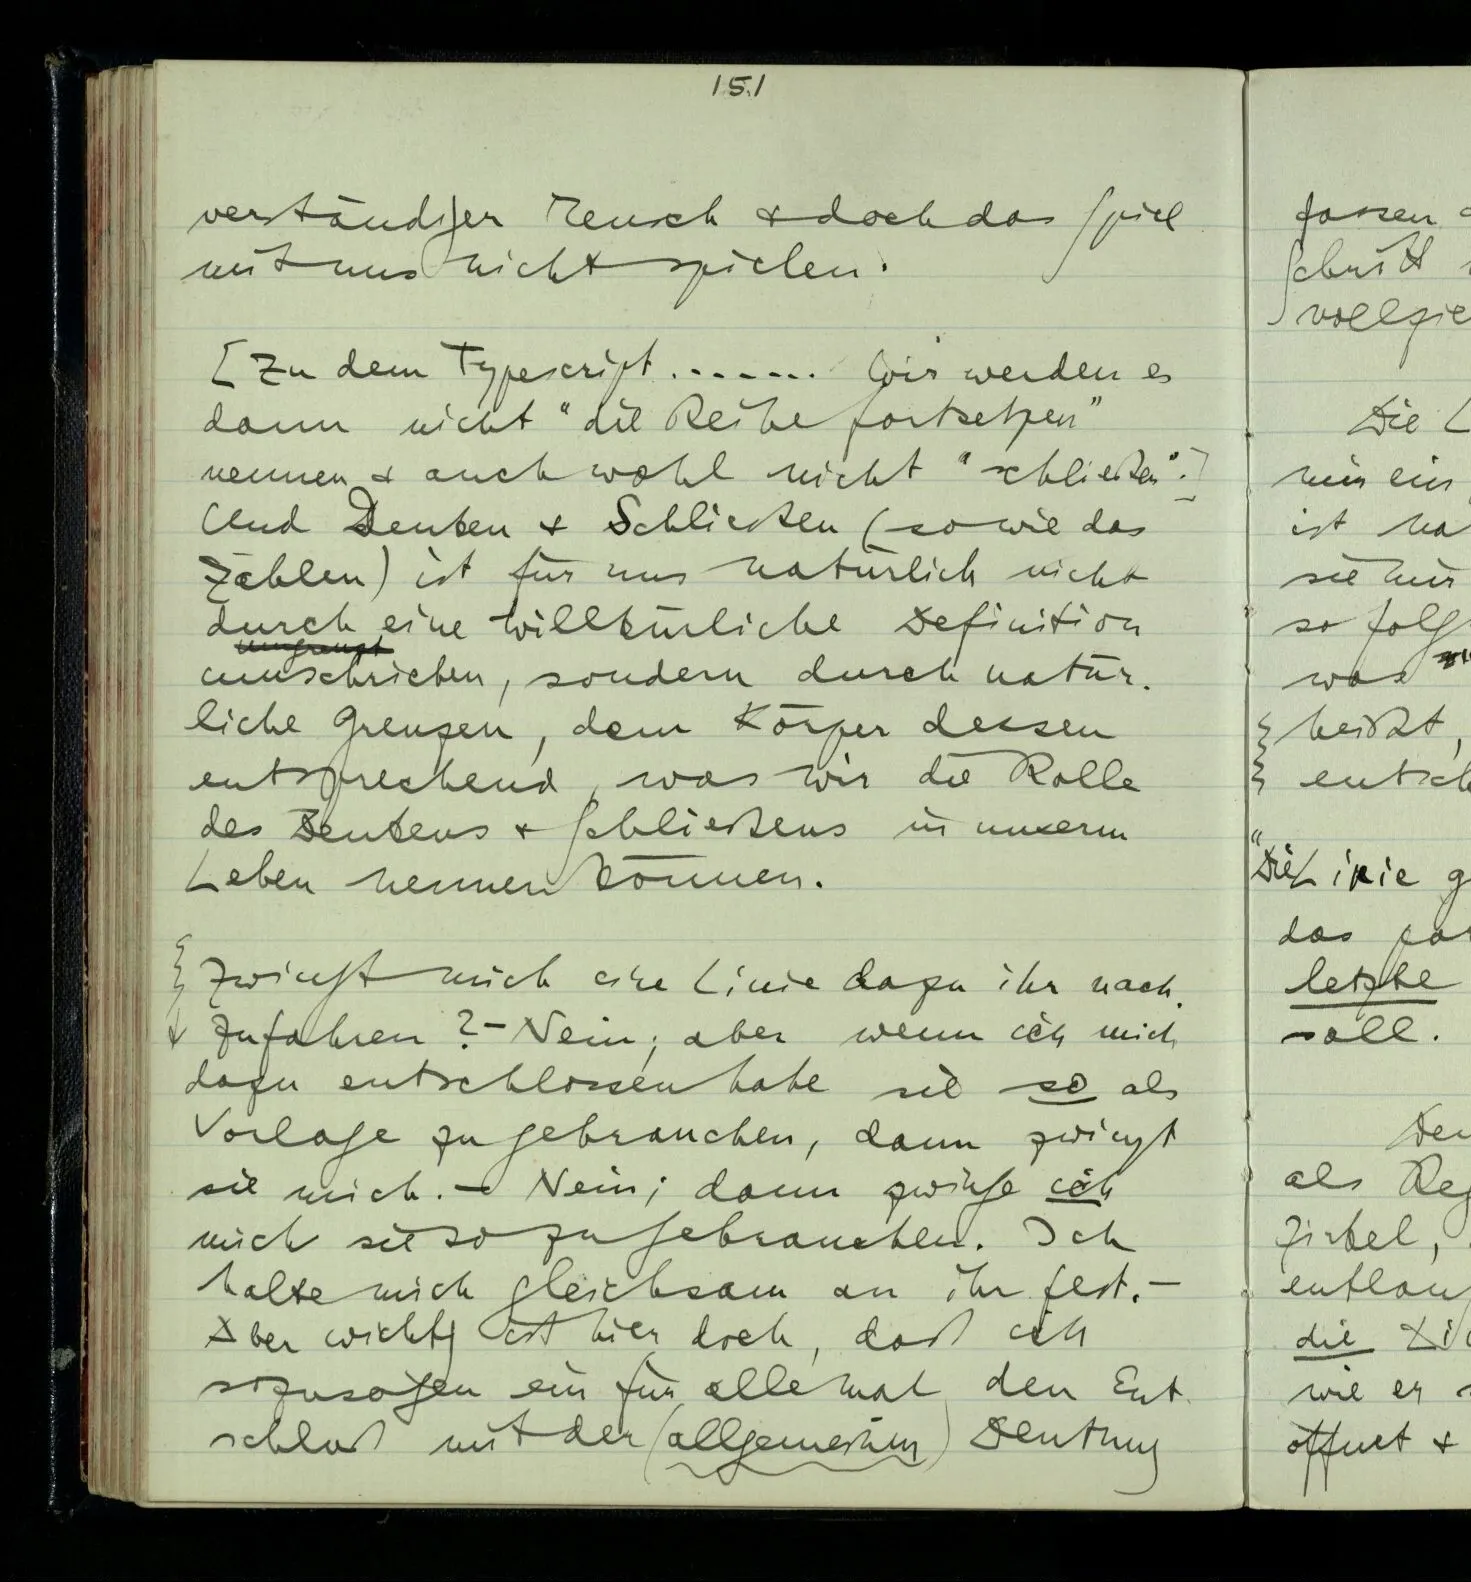 151
verständiger Mensch & doch das Spiel
mit uns nicht spielen.
[Zu dem Typescript ....... Wir werden es
dann nicht "die Reihe fortsetzen"
nennen & auch wohl nicht "schließen".]
Und Denken & Schließen (sowie das
Zählen) ist für uns natürlich nicht
durch eine willkürliche Definition
umgrenzt
umschrieben, sondern durch natür-
liche Grenzen, dem Körper dessen
entsprechend, was wir die Rolle
des Denkens & Schließens in unserm
Leben nennen können.
Zwingt mich eine Linie dazu ihr nach-
zufahren? – Nein; aber wenn ich mich
dazu entschlossen habe sie so als
Vorlage zu gebrauchen, dann zwingt
sie mich. – Nein; dann zwinge ich
mich sie so zu gebrauchen. Ich
halte mich gleichsam an ihr fest. –
Aber wichtig ist hier doch, daß ich
sozusagen ein für alle mal den Ent-
schluß mit der (allgemeinen) Deutung
fassen
Schritt
vollzie
Die L
mir ein
ist na
sie mir
so folg
was
heißt,
entsch
"Die Linie g
das
letzte
soll.
Den
als Reg
Zirkel,
entlang
die Zi
wie er
öffnet &